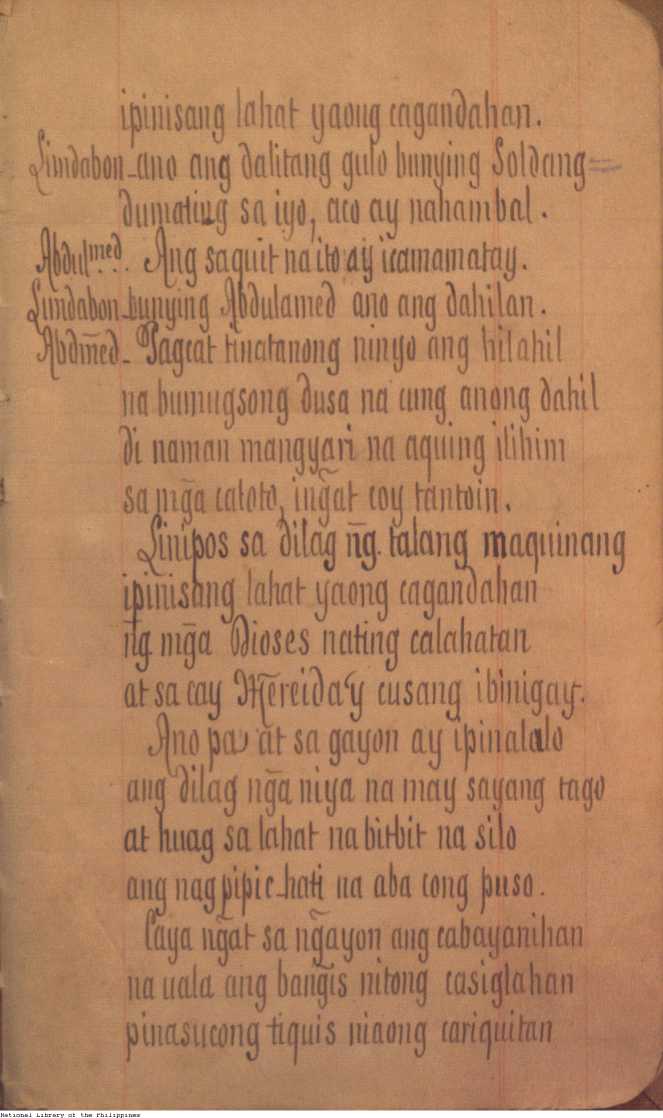 ipinisang lahat yaong cagandahan.
Lindabon-ano ang dalitang gulo bunying Soldang=
dumating sa iyo, aco ay nahambal.
Abdulmed. Ang saquit na ito ay icamamatay.
Lindabon-bunying Abdulamed ano ang dahilan.
Abdm̄ed- Pagcat tinatanong ninyo ang hilahil
na bumugsong dusa na cung anong dahil
di naman mangyari na aquing ilihim
sa mg̃a catoto, ing̃at coy tantoin.
Linipos sa dilag n̄g. talang maquinang
ipinisang lahat yaong cagandahan
n̄g mḡa Dioses nating calahatan
at sa cay Mereida'y cusang ibinigay.
Ano pa at sa gayon ay ipinalalo
ang dilag nḡa niya na may sayang tago
at huag sa lahat na bitbit na silo
ang nagpipic-hati na aba cong puso.
Caya ng̃at sa ng̃ayon ang cabayanihan
na uala ang bang̃is nitong casiglahan
pinasucong tiquis niaong cariquitan
National Library of the Philippines